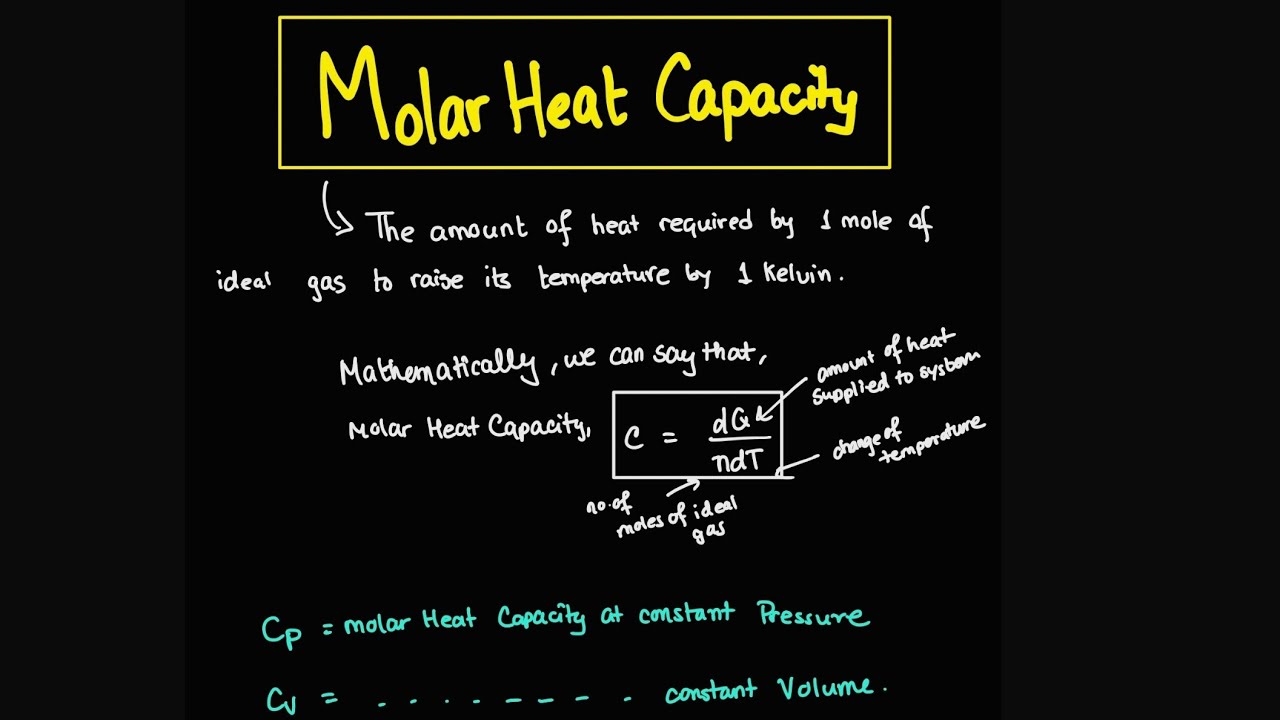 Molar Heat Capacity
The amount of heat required by 1 mole of
ideal gas to raise its temperature by 1 Kelvin.
Mathematically, we can say that,
Molar Heat Capacity, C = dQ / ndT
amount of heat
supplied to system
change of
temperature
no. of
moles of ideal
gas
Cp = molar Heat Capacity at constant Pressure
Cv = . . . . - - - . constant Volume.